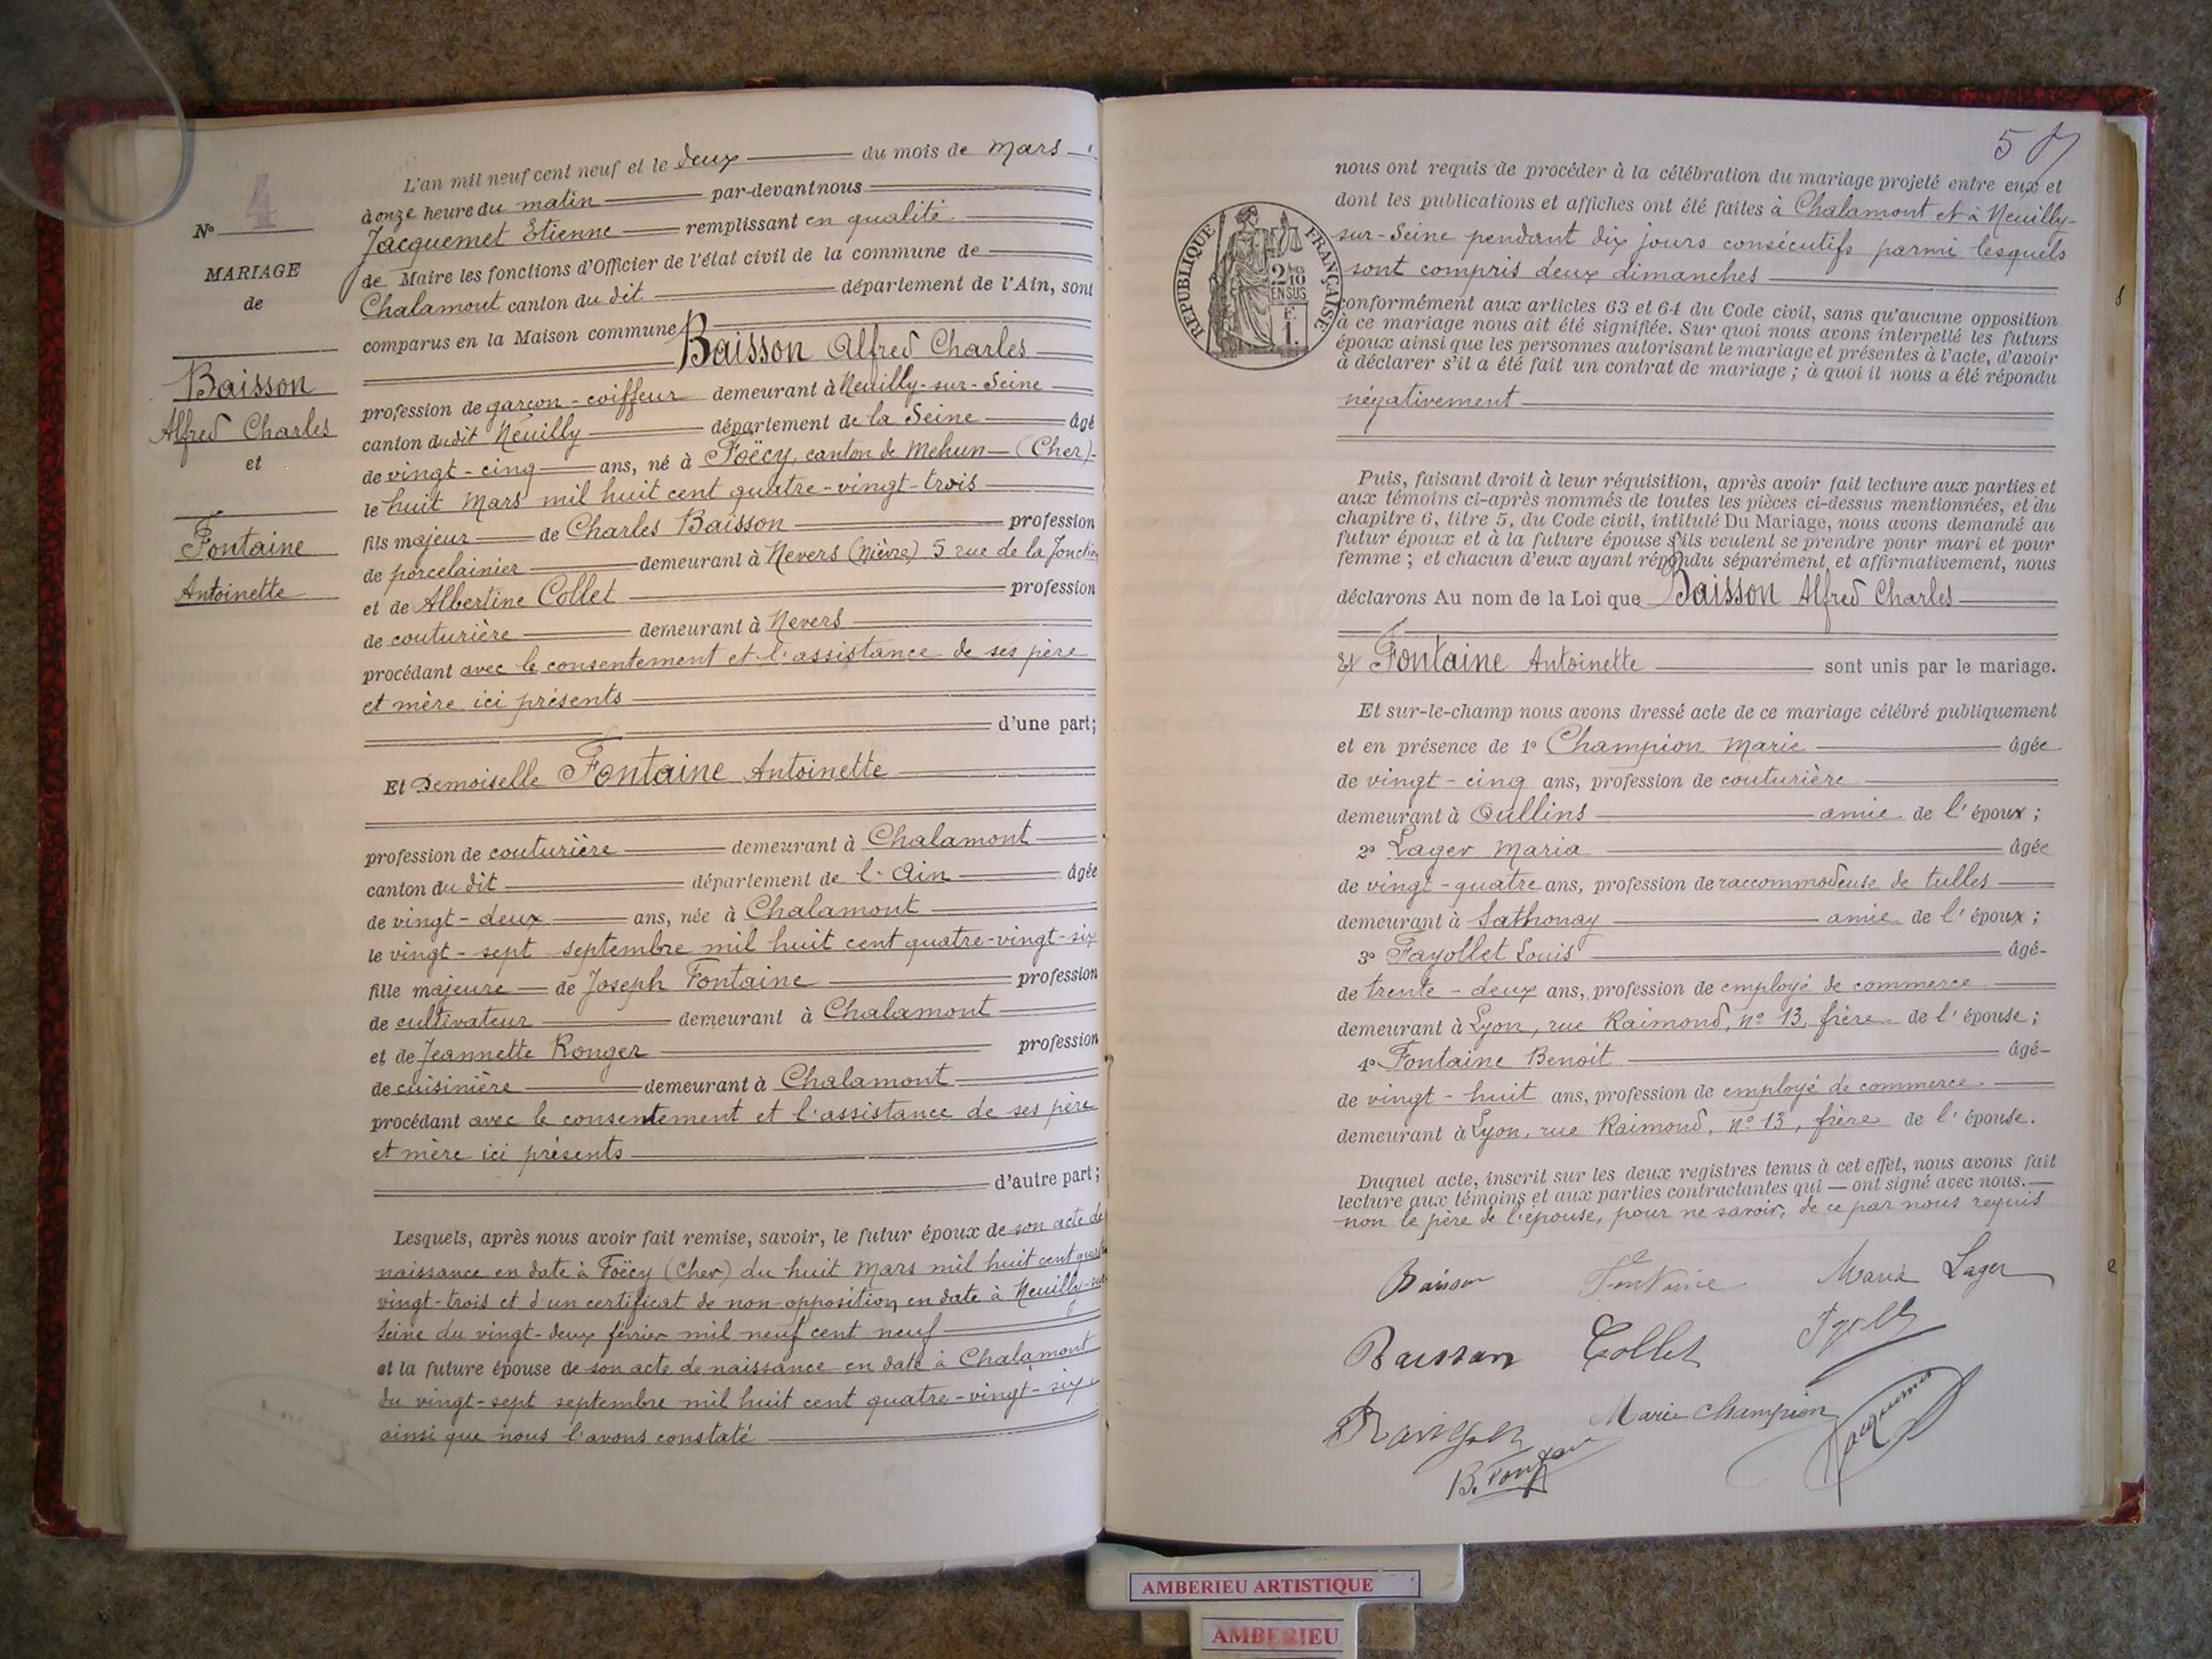 L'an mil neuf cent neuf et le deux du mois de Mars
à onze heure du matin par-devant nous
Jacquemet Etienne remplissant en qualité
de Maire les fonctions d'Officier de l'état civil de la commune de
Chalamont canton du dit département de l'Ain, sont
comparus en la Maison commune
Baisson Alfred Charles
profession de garçon-coiffeur demeurant à Neuilly-sur-Seine
canton dudit Neuilly département de la Seine âgé
de vingt-cinq ans, né à Foëcy, canton de Mehun (Cher)
le huit Mars mil huit cent quatre-vingt-trois
fils majeur de Charles Baisson profession
de porcelainier demeurant à Nevers (Nièvre) 5 rue de la Jonction
et de Albertine Collet profession
de couturière demeurant à Nevers
procédant avec le consentement et l'assistance de ses père
et mère ici présents
d'une part;
Et Demoiselle Fontaine Antoinette
profession de couturière demeurant à Chalamont
canton du dit département de l'Ain âgée
de vingt-deux ans, née à Chalamont
le vingt-sept septembre mil huit cent quatre-vingt-six
fille majeure de Joseph Fontaine profession
de cultivateur demeurant à Chalamont
et de Jeannette Ronger profession
de cuisinière demeurant à Chalamont
procédant avec le consentement et l'assistance de ses père
et mère ici présents
d'autre part;
Lesquels, après nous avoir fait remise, savoir, le futur époux de son acte de
naissance en date à Foëcy (Cher) du huit Mars mil huit cent quatre
vingt-trois et d'un certificat de non-opposition en date à Neuilly-sur
Seine du vingt-deux février mil neuf cent neuf
et la future épouse de son acte de naissance en date à Chalamont
du vingt-sept septembre mil huit cent quatre-vingt-six
ainsi que nous l'avons constaté
N° 4
MARIAGE
de
Baisson
Alfred Charles
et
Fontaine
Antoinette
5
nous ont requis de procéder à la célébration du mariage projeté entre eux et
dont les publications et affiches ont été faites à Chalamont et à Neuilly-
sur-Seine pendant dix jours consécutifs parmi lesquels
sont compris deux dimanches
conformément aux articles 63 et 64 du Code civil, sans qu'aucune opposition
à ce mariage nous ait été signifiée. Sur quoi nous avons interpellé les futurs
époux ainsi que les personnes autorisant le mariage et présentes à l'acte, d'avoir
à déclarer s'il a été fait un contrat de mariage ; à quoi il nous a été répondu
négativement
RÉPUBLIQUE FRANÇAISE
2/10
EN SUS
F.
1.
Puis, faisant droit à leur réquisition, après avoir fait lecture aux parties et
aux témoins ci-après nommés de toutes les pièces ci-dessus mentionnées, et du
chapitre 6, titre 5, du Code civil, intitulé Du Mariage, nous avons demandé au
futur époux et à la future épouse s'ils veulent se prendre pour mari et pour
femme ; et chacun d'eux ayant répondu séparément et affirmativement, nous
déclarons Au nom de la Loi que Baisson Alfred Charles
Et Fontaine Antoinette sont unis par le mariage.
Et sur-le-champ nous avons dressé acte de ce mariage célébré publiquement
et en présence de 1° Champion Marie âgée
de vingt-cinq ans, profession de couturière
demeurant à Oullins amie de l'époux ;
2° Lager Maria âgée
de vingt-quatre ans, profession de raccommodeuse de tulles
demeurant à Sathonay amie de l'époux ;
3° Fayollet Louis âgé
de trente-deux ans, profession de employé de commerce
demeurant à Lyon, rue Raimond, n° 13, frère de l'épouse ;
4° Fontaine Benoit âgé
de vingt-huit ans, profession de employé de commerce
demeurant à Lyon, rue Raimond, n° 13, frère de l'épouse.
Duquel acte, inscrit sur les deux registres tenus à cet effet, nous avons fait
lecture aux témoins et aux parties contractantes qui ont signé avec nous.
non le père de l'épouse, pour ne savoir, de ce par nous requis
Baisson Fontaine Maria Lager
Baisson Collet
Marie Champion Jacquemet
AMBERIEU ARTISTIQUE
AMBERIEU